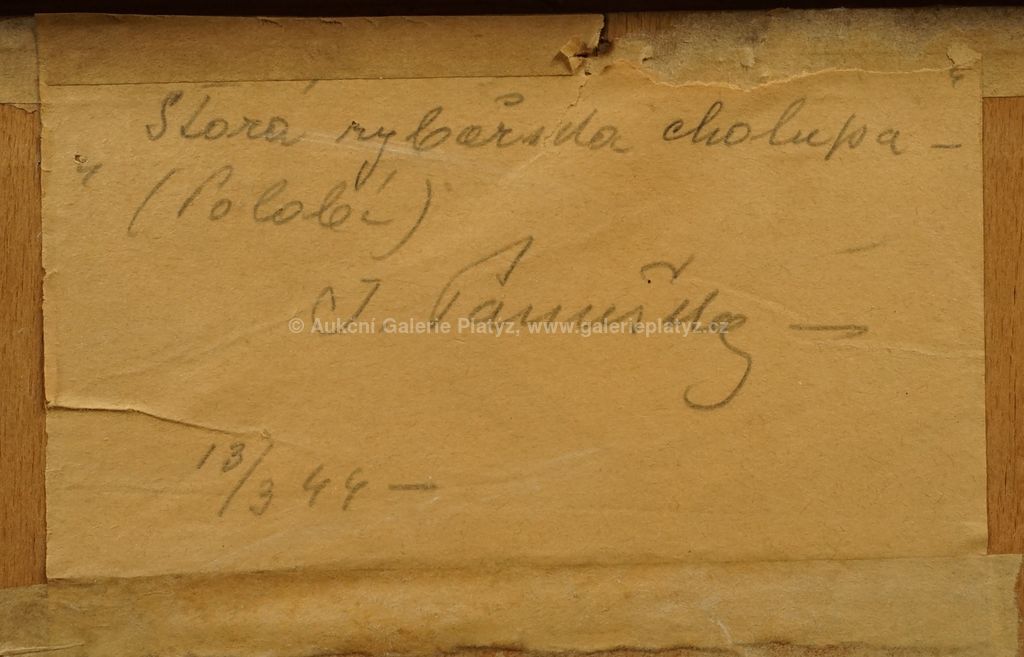 Stará rybářská chalupa –
„ (Polabí) "
J. Panuška –
© Aukcní Galerie Platyz, www.galerieplatyz.cz
13/3 44 –